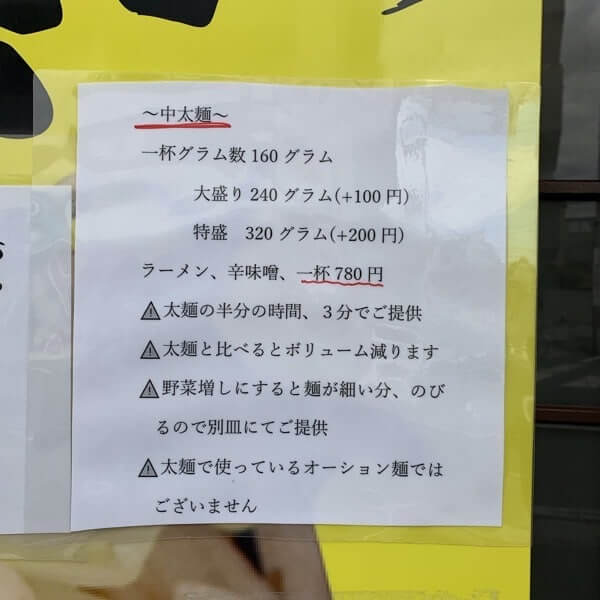 ～中太麺～
一杯グラム数160グラム
大盛り240グラム(+100円)
特盛　320グラム(+200円)
ラーメン、辛味噌、一杯780円
⚠太麺の半分の時間、３分でご提供
⚠太麺と比べるとボリューム減ります
⚠野菜増しにすると麺が細い分、のび
るので別皿にてご提供
⚠太麺で使っているオーション麺では
ございません